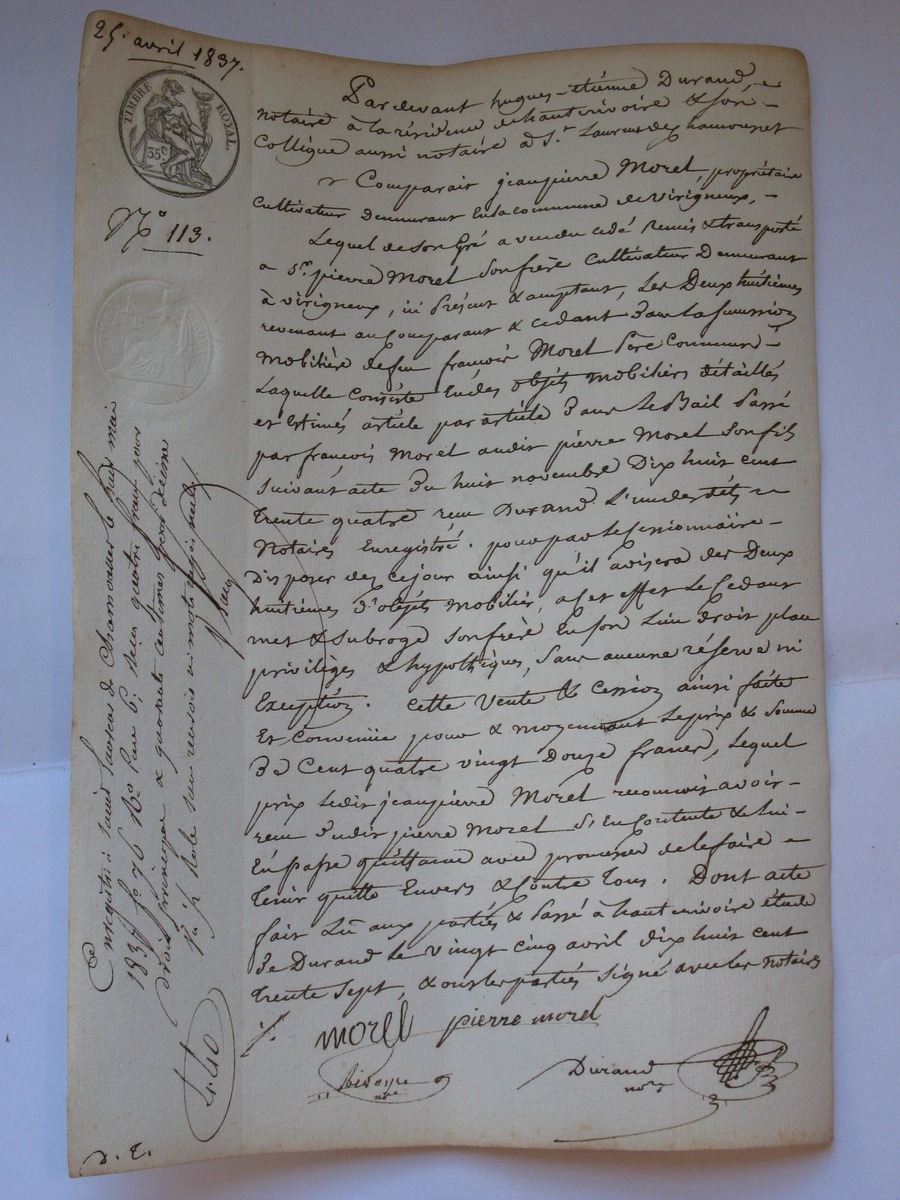 25. avril 1837.
TIMBRE ROYAL.
35c
No 113.
Pardevant hugues-étienne Durand,
notaire à la résidence de hauterivoire & son
Collègue aussi notaire à St. Laurent de chamousset
Comparait jeanpierre Morel, propriétaire
Cultivateur Demeurant En la commune de virigneux,
Lequel de son Gré a vendu cédé Remis & transporté
a Sr. pierre Morel Son frère Cultivateur Demeurant
à virigneux, ici présent & acceptant, Les Deux huitièmes
revenant au Comparant & cedant Dans La succession
Mobilière de feu françois Morel Père Commun
Laquelle Consiste En des objets Mobiliers détaillés
et Estimés article par article Dans Le Bail Passé
par françois Morel audit pierre Morel Son fils
Suivant acte Du huit novembre Dix huit cent
trente quatre reçu Durand L'un des dits
Notaires Enregistré. pour par le Cessionnaire
Disposer dez ce jour ainsi qu'il avisera des Deux
huitièmes D'objets mobiliers, a cet effet Le Cedant
met & Subroge Son frère En son Lieu droit place
privilèges & hypothèques, Sans aucune réserve ni
Exception. Cette vente & cession ainsi faite
Et Convenüe pour & moyennant Le prix & Somme
De Cent quatre vingt Douze francs, Lequel
prix Ledit jeanpierre Morel reconnoit avoir
reçu Dudit pierre Morel S'En Contente & Lui
En Passe quittance avec promesse de le faire
tenir quitte Envers & Contre tous. Dont acte
fait Lû aux parties & Passé à hauterivoire étude
De Durand le vingt cinq avril dix huit cent
trente Sept, & ont les parties Signé avec les notaires
morel pierre morel
Durand
nore
Enregistré à saint Laurent de Chamousset le huit mai
1837 fo 76 Ro Case 6, reçu quatre francs pour
droit principal & quarante centimes pour dixième